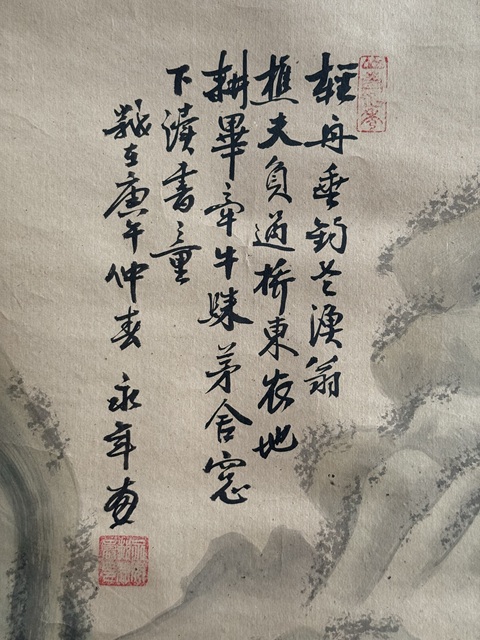 輕舟垂釣老漁翁
樵夫負過橋東农地
耕畢牽牛歸茅舍窓
下讀書童
歲在庚午仲春 永年画